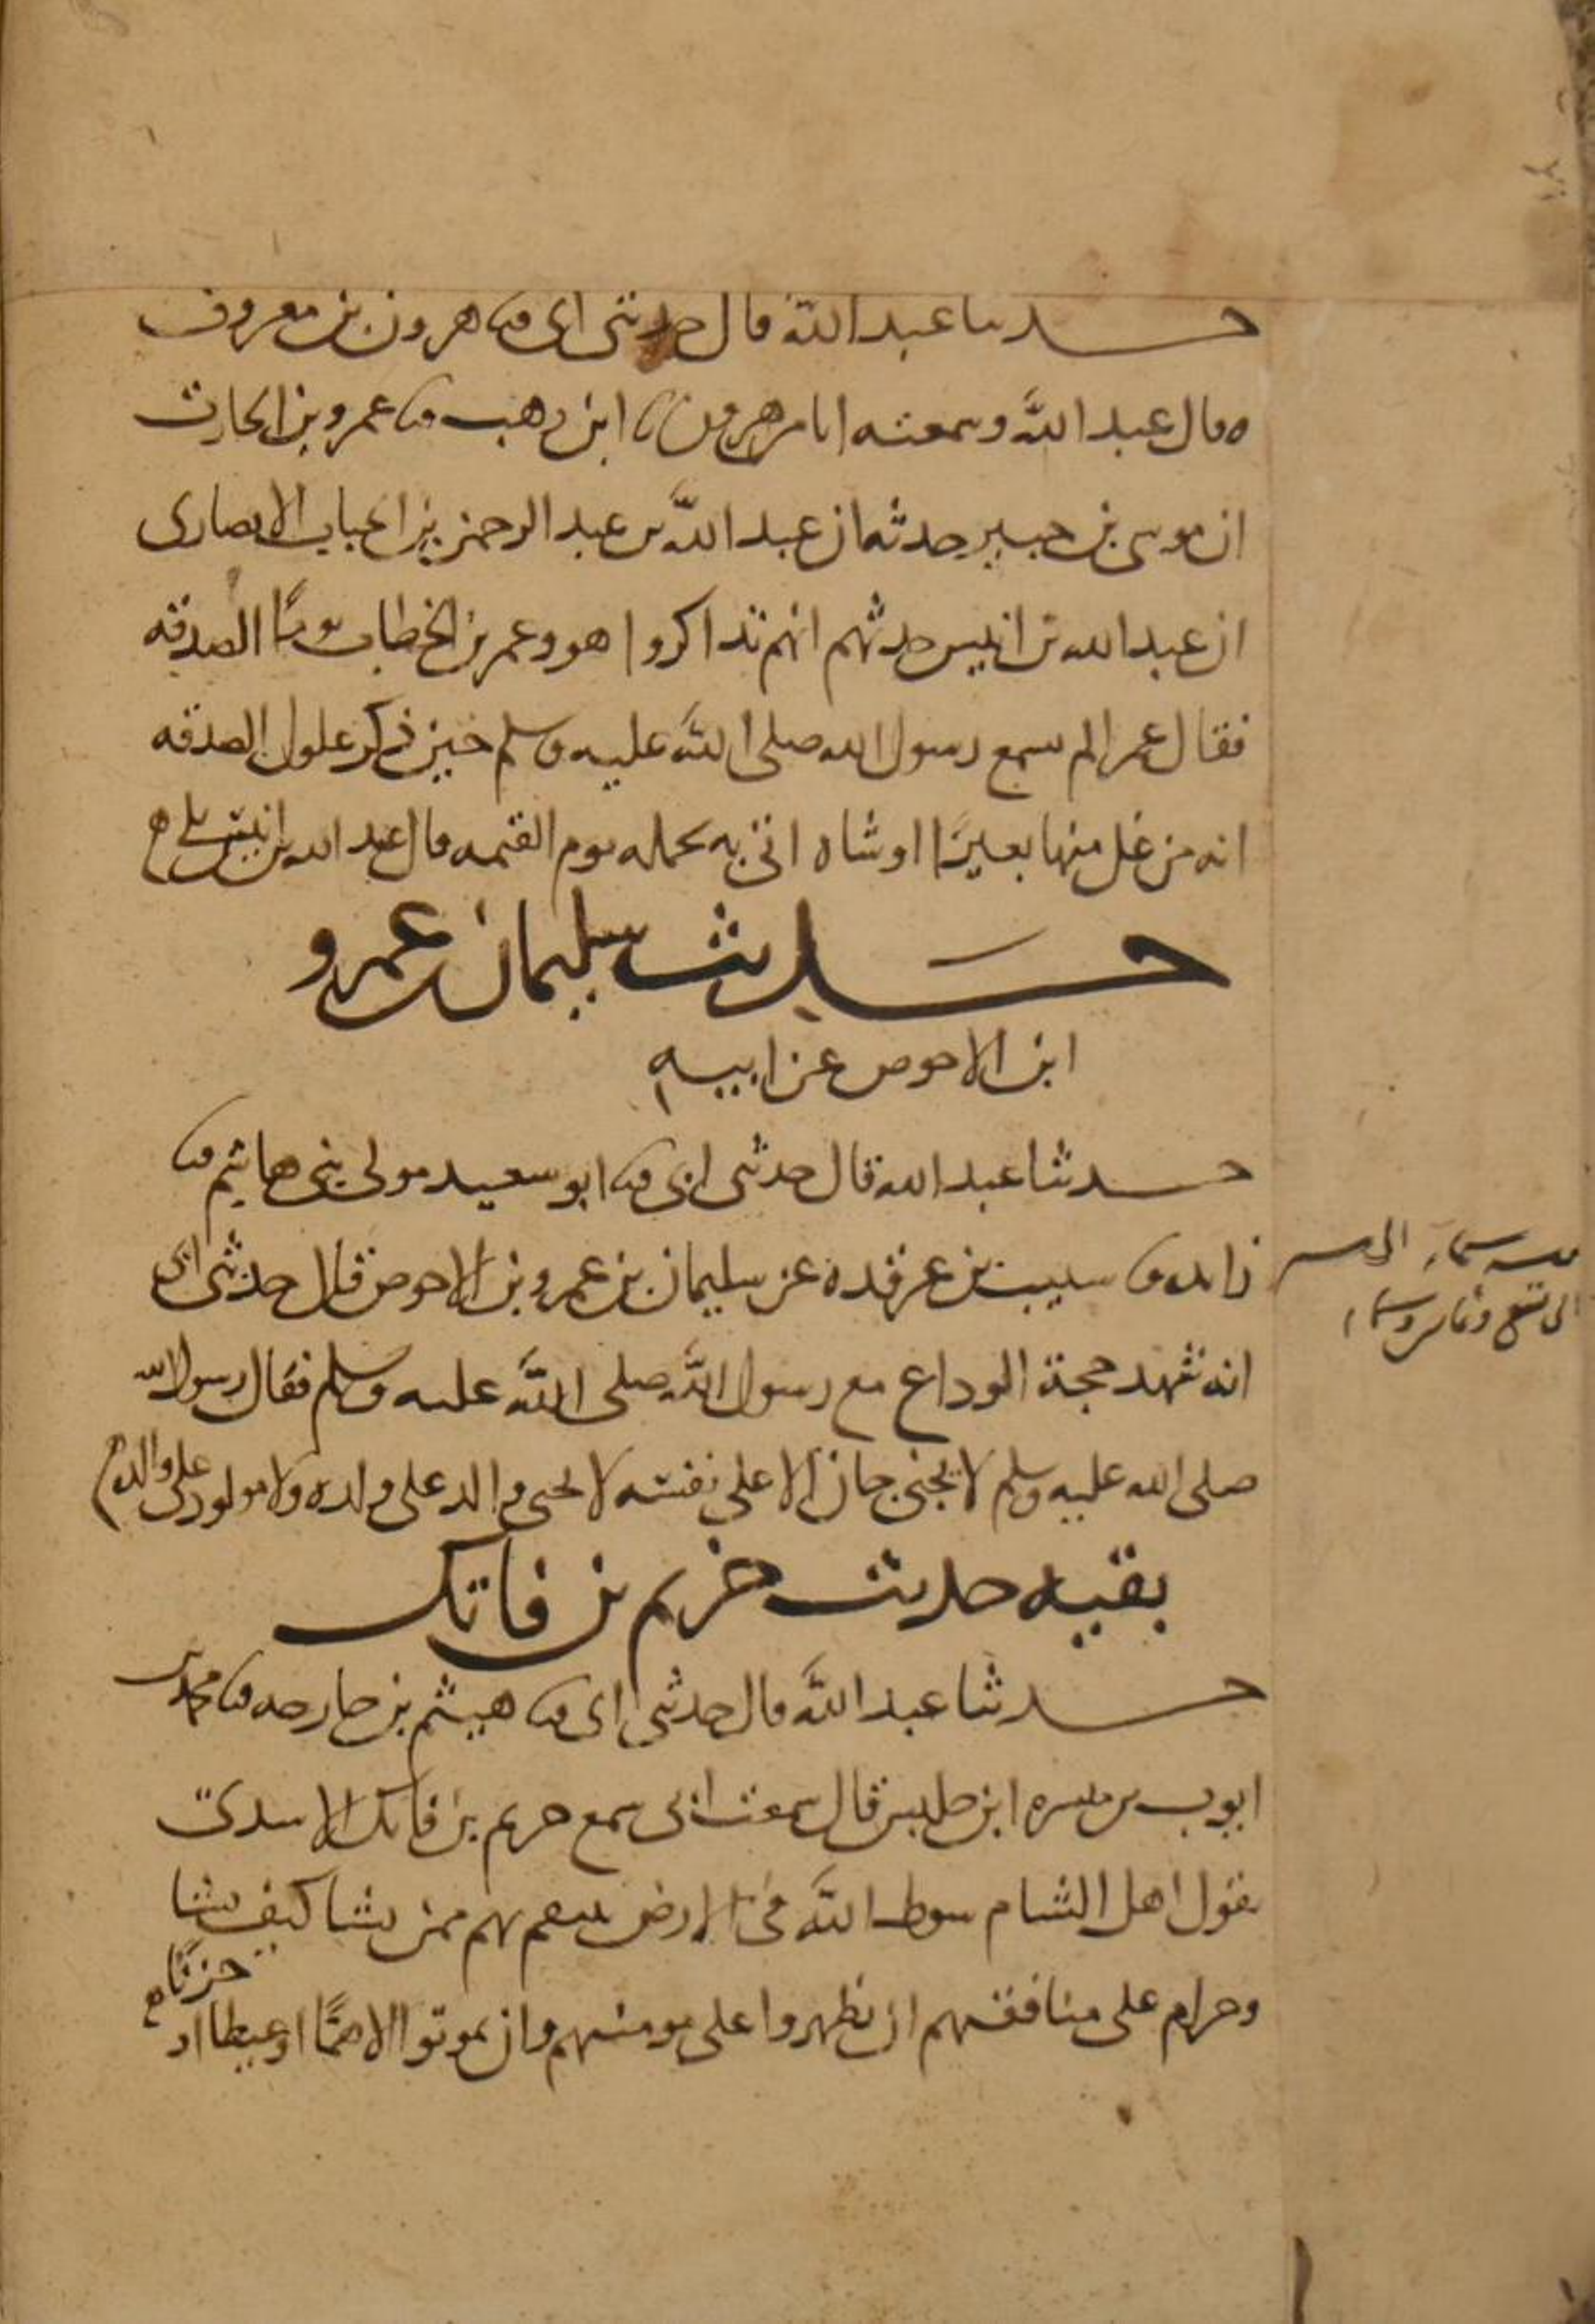 حدثنا عبد الله قال حدثني ابي ثنا هرون بن معروف
قال عبد الله وسمعته انا من هرون ثنا ابن وهب ثنا عمرو بن الحارث
ان موسى بن جبير حدثه ان عبد الله بن عبد الرحمن بن الحباب الانصاري
ان عبد الله بن انيس حدثهم انهم تذاكروا هو وعمر بن الخطاب يوما الصدقه
فقال عمر الم تسمع رسول الله صلى الله عليه وسلم حين ذكر غلول الصدقه
انه من غل منها بعيرًا او شاه اتي به يحمله يوم القيمه قال عبد الله بن انيس بلى
حديث سليمان بن عمرو
ابن الاحوص عن ابيه
حدثنا عبد الله قال حدثني ابي ثنا ابو سعيد مولى بني هاشم ثنا
زائده ثنا شبيب بن غرقده عن سليمان بن عمرو بن الاحوص قال حدثني ابي
انه شهد حجة الوداع مع رسول الله صلى الله عليه وسلم فقال رسول الله
صلى الله عليه وسلم لا يجني جان الا على نفسه لا يجني والد على ولده ولا مولود على والده
بقيه حديث خريم بن فاتك
حدثنا عبد الله قال حدثني ابي ثنا هيثم بن خارجه ثنا محمد بن
ايوب بن ميسره ابن حلبس قال سمعت ابي سمع خريم بن فاتك الاسدي
يقول اهل الشام سوط الله في الارض ينتقم بهم ممن يشا كيف يشا
وحرام على منافقيهم ان يظهروا على مومنيهم وان يموتوا الا همًا او غيظا او
حزنًا